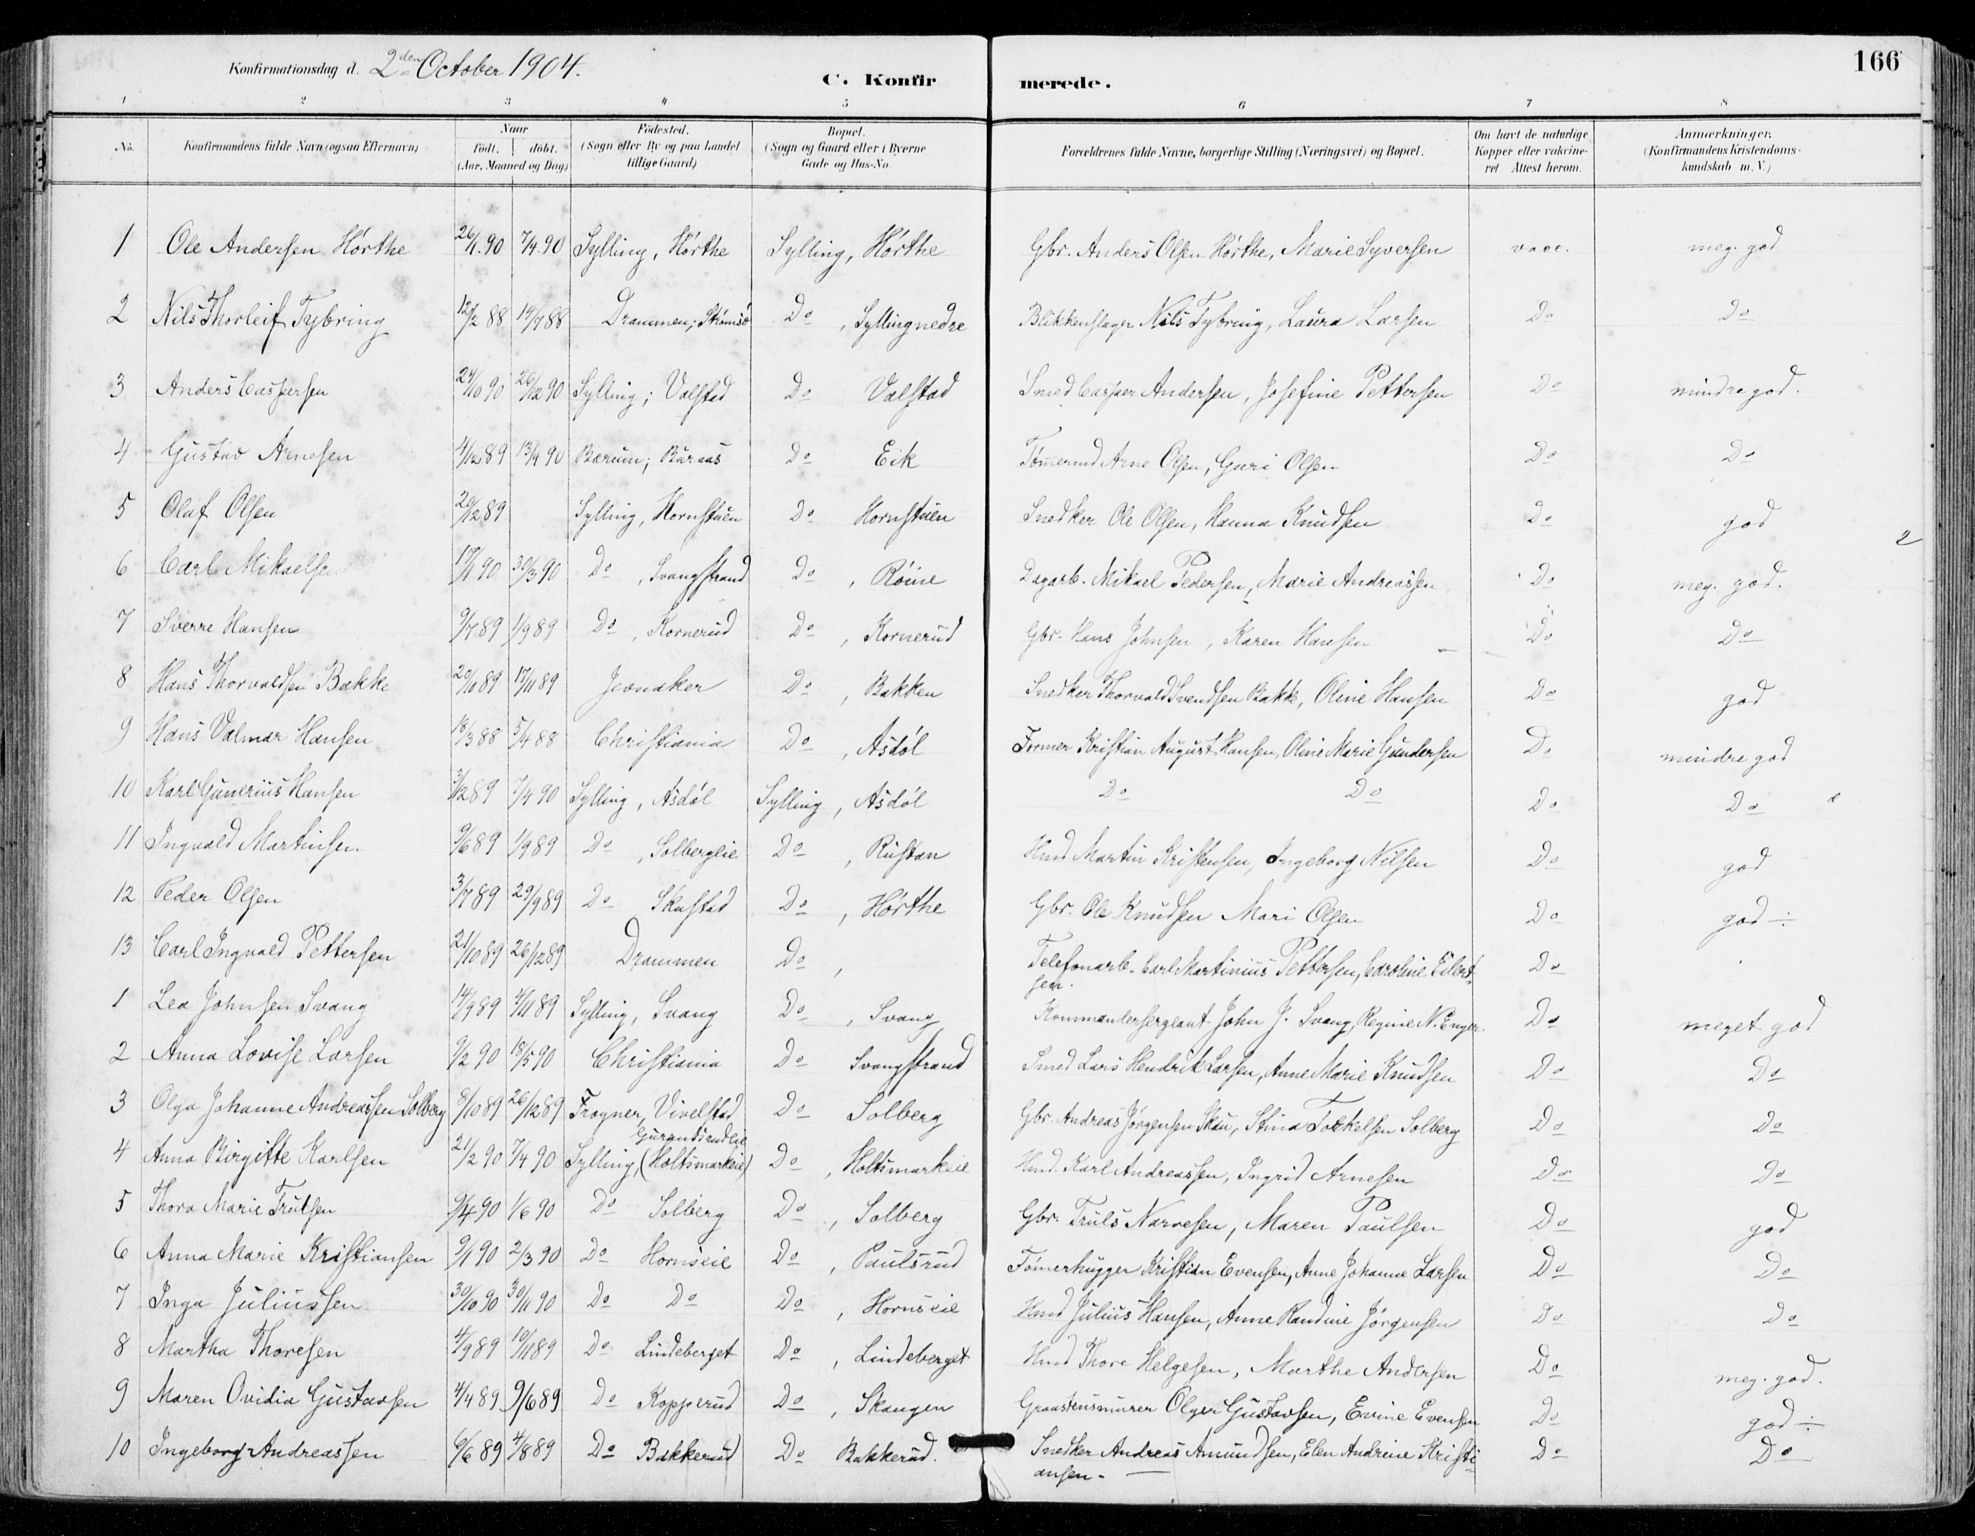 166
Konfirmationsdag d. 2den October 1904.
C. Konfirmerede.
1 2 3 4 5 6 7 8
No. Konfirmandens fulde Navn (ogsaa Efternavn) Naar født. døbt. (Aar, Maaned og Dag) Fødested. (Sogn eller By og paa Landet tillige Gaard) Bopæl. (Sogn og Gaard eller i Byerne Gade og Hus-No. Forældrenes fulde Navne, borgerlige Stilling (Næringsvei) og Bopæl. Om havt de naturlige Kopper eller vakcineret. Attest herom. Anmærkninger. (Konfirmandens Kristendomskundskab m. V.)
1 Ole Andersen Hörthe 26/1.90 7/4 90 Sylling, Hörthe Sylling, Hörthe Gbr. Anders Olsen Hörthe, Marie Syversen vacc. meg. god
2 Nils Thorleif Tybring 12/2 88 14/7 88 Drammen; Strömsö Do, Sylling nedre Blikkenslager Nils Tybring, Laura Larsen Do Do
3 Anders Caspersen 24/10 90 26/12 90 Sylling; Valstad Do Valstad Smed Casper Andersen, Josefine Pettersen Do mindre god.
4 Gustav Arnesen 4/12 89 13/4 90 Bærum; Buraas Do Eik Arne Olsen, Guri Olsen Do Do
5 Olaf Olsen 20/12 89 Sylling, Hornstuen Do Hornstuen Snedker Ole Olsen, Hanna Knudsen Do god
6 Carl Mikaelsen 17/1 90 30/3 90 Do, Svangstrand Do, Röine Dagarb. Mikael Pedersen, Marie Andreassen Do meg. god.
7 Sverre Hansen 9/7 89 1/9 89 Do, Kornerud Do, Kornerud Gbr. Hans Johnsen, Karen Hansen Do Do
8 Hans Thorvaldsen Bakke 20/10 89 17/11 89 Jevnaker Do, Bakken Snedker Thorvald Svendsen Bakke, Oline Hansen Do god
9 Hans Valmar Hansen 18/3 88 5/4 88 Christiania Do, Asdöl Former Kristian August Hansen, Oline Marie Gundersen Do mindre god
10 Karl Gunerius Hansen 3/12 89 7/4 90 Sylling, Asdöl Sylling, Asdöl Do Do Do Do
11 Ingvald Martinsen 9/6 89 1/9 89 Do, Solberglie Do, Rustan Hmd Martin Kristensen, Ingeborg Nilsen Do god
12 Peder Olsen 3/7 89 29/9 89 Do Skustad Do, Hörthe Gbr. Ole Knudsen Mari Olsen Do god ÷
13 Carl Ingvald Pettersen 21/10 89 26/12 89 Drammen Do, Telefonarb. Carl Martinius Pettersen, Caroline Eilert-
sen. Do
1 Lea Johnsen Svang 14/9 89 4/11 89 Sylling, Svang Do, Svang Kommandersergeant John J. Svang, Regine N. Enger Do meget god
2 Anna Lovise Larsen 9/2 90 18/5 90 Christiania Do Svangstrand Smed Lars Hendrik Larsen, Anne Marie Knudsen Do Do
3 Olga Johanne Andreassen Solberg 8/10 89 26/12 89 Frogner, Vivelstad Do Solberg Gbr. Andreas Jörgensen Skau, Stina Torkelsen Solberg Do Do
4 Anna Birgitte Karlsen 21/2 90 7/4 90 Sylling, (Holtsmarkeie) Do, Holtsmarkeie Hmd. Karl Andreassen, Ingrid Arnesen Do Do
5 Thora Marie Trulsen 9/4 90 1/6 90 Do Solberg Do, Solberg Gbr. Truls Narvesen, Maren Paulsen Do god
6 Anna Marie Kristiansen 9/1 90 2/3 90 Do Hornseie Do, Paulsrud Tømerhugger Kristian Evensen, Anne Johanne Larsen Do Do
7 Inga Juliussen 30/10 90 30/11 90 Do Do Do, Hornseie Hmd Julius Hansen, Anne Randine Jörgensen Do Do
8 Martha Thoresen 4/9 89 10/11 89 Do Lindeberget Do, Lindeberget Hmd Thore Helgesen, Marthe Andersen Do meg. god.
9 Maren Ovidia Gustavsen 4/4 89 9/6 89 Do Kopperud Do, Skangen Graastensmurer Olger Gustavsen, Evine Evensen Do god ÷
10 Ingeborg Andreassen 6/6 89 4/8 89 Do Bakkerud Do Bakkerud. Snedker Andreas Amundsen, Elen Andrine Kristi-
ansen. Do Do